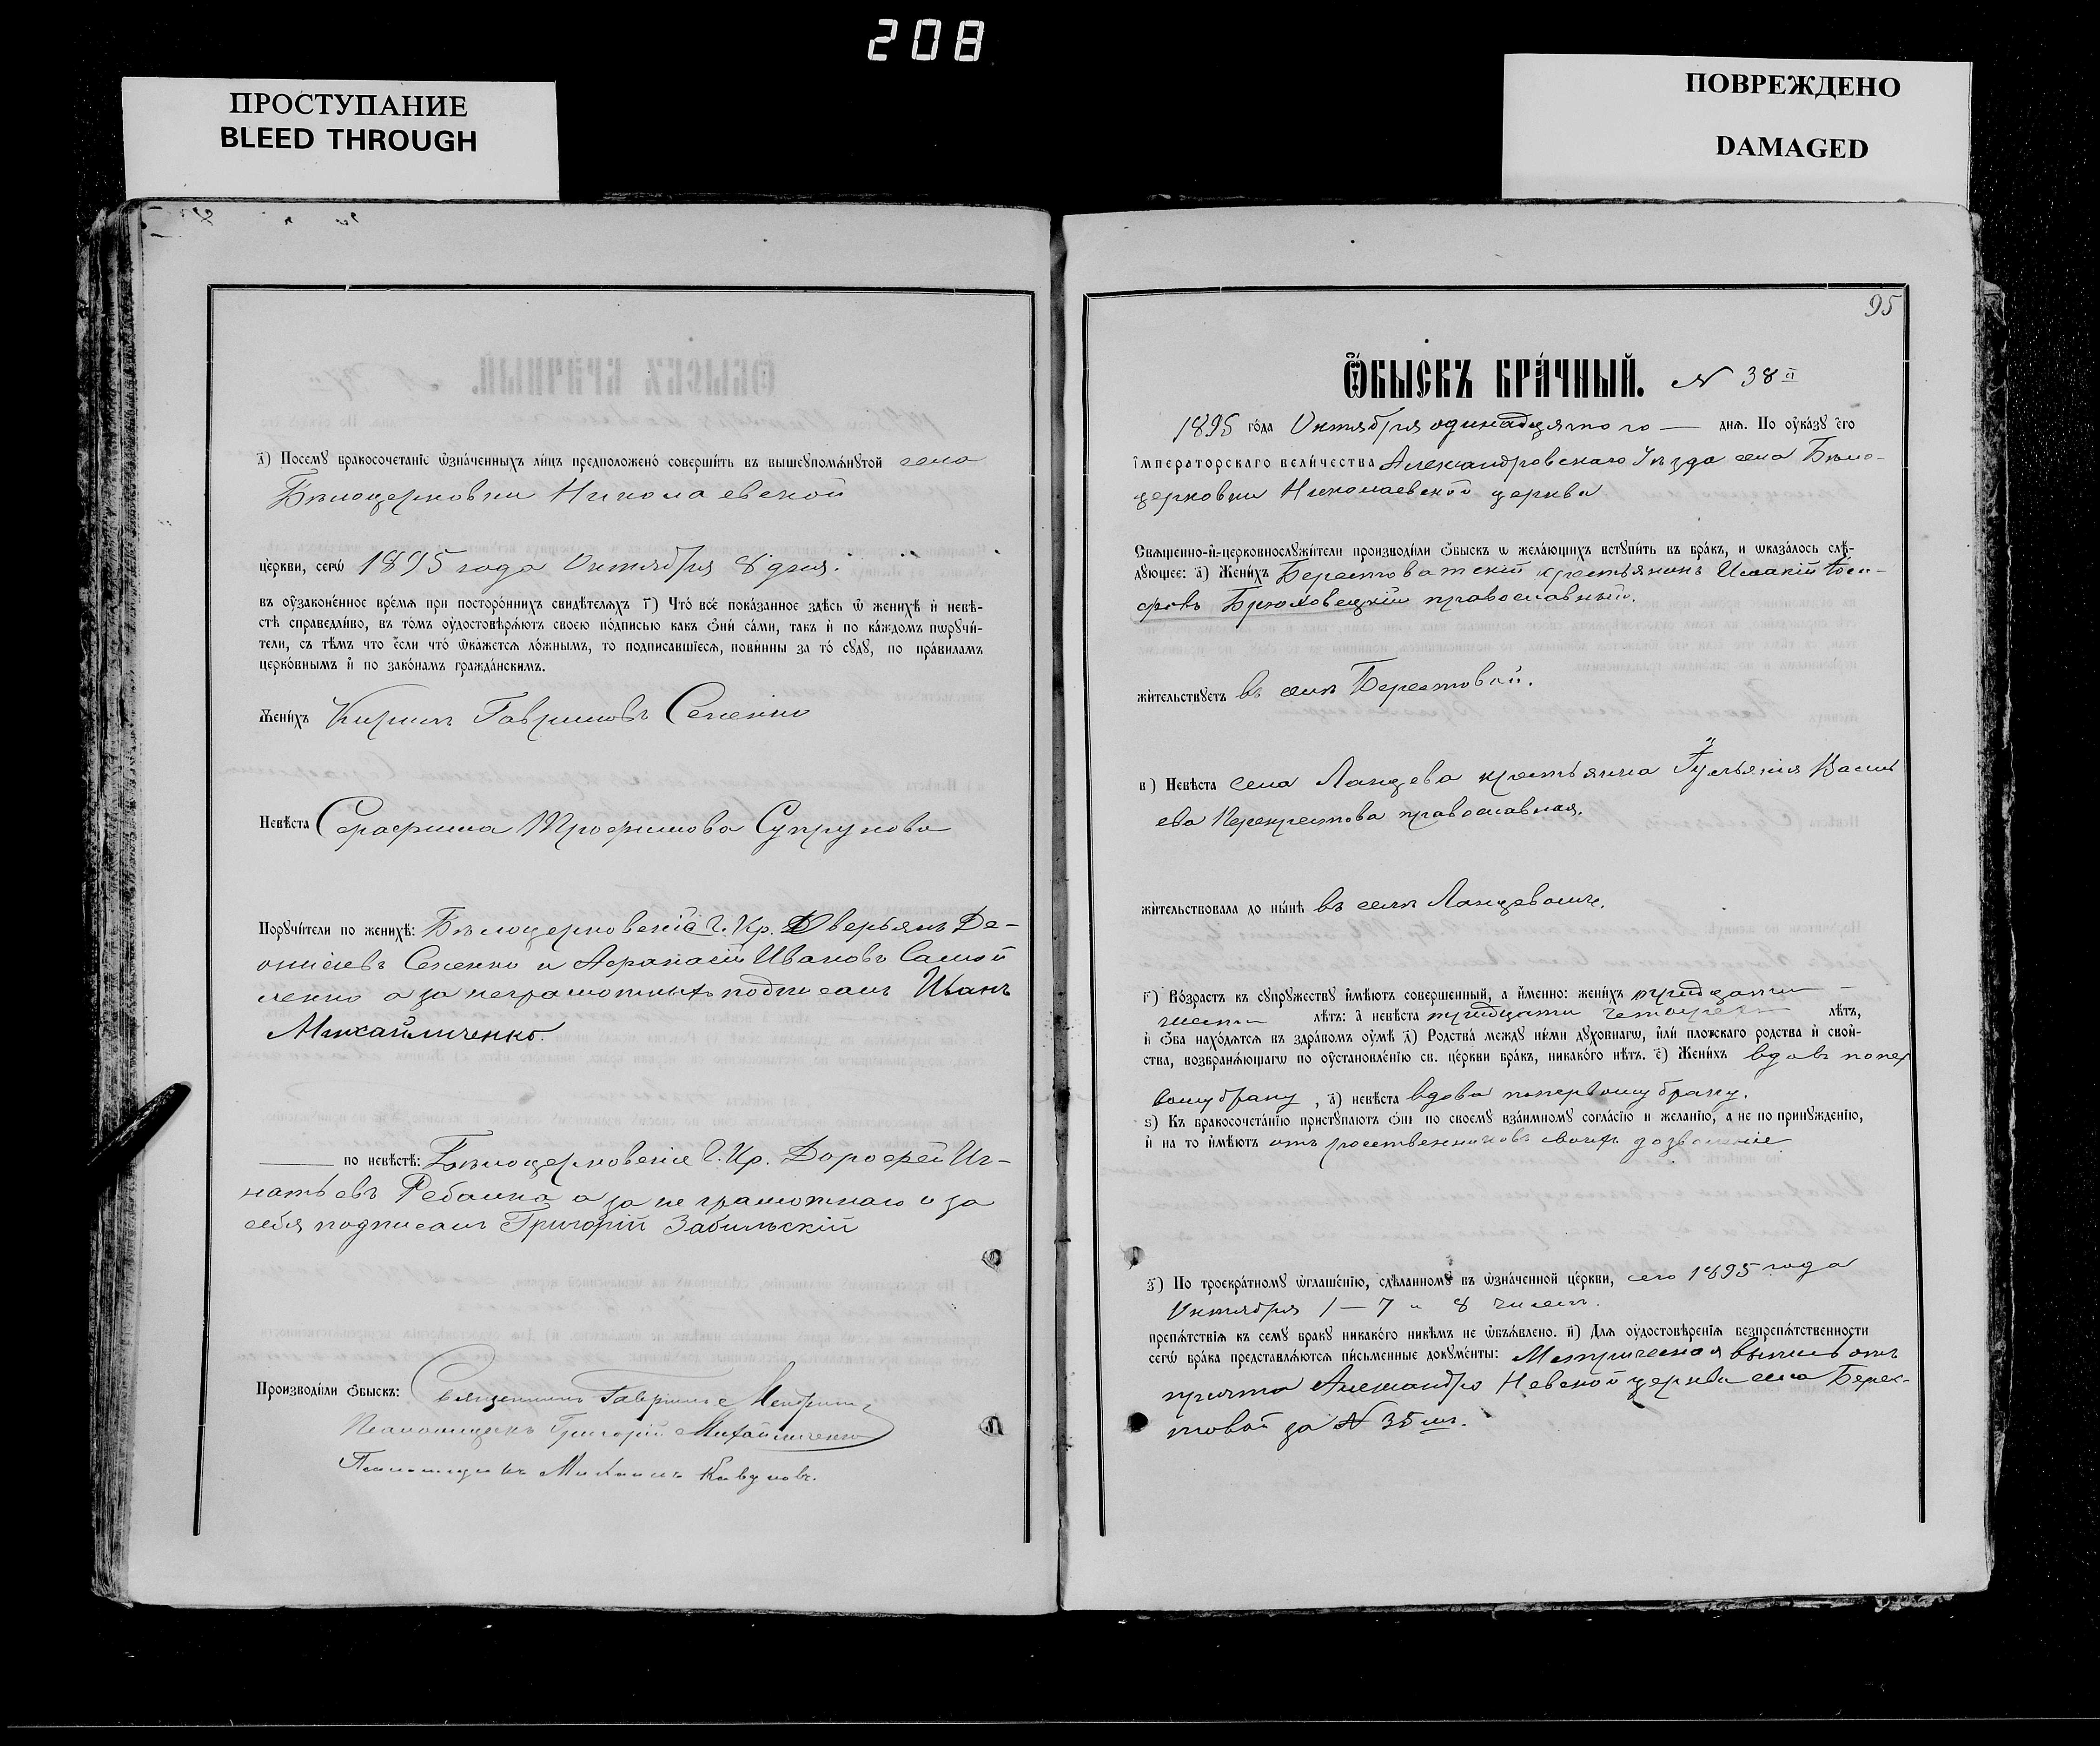 208
ПРОСТУПАНИЕ
BLEED THROUGH
ПОВРЕЖДЕНО
DAMAGED
з҃) Посемꙋ бракосочетанїе ѡзна́ченныхъ ли́цъ предположено̀ соверши́ть въ вышеꙋпомѧ́нꙋтой села
Бѣлоцерковки Николаевской
це́ркви, сегѡ̀ 1895 года Октября 8 дня.
въ оу҆зако́не́нное вре́мѧ при посторо́ннихъ свидѣ́телѧхъ г҃) Что̀ всѐ пока́занное здѣ́сь ѡ҆ женихѣ̀ и҆ невѣ́-
стѣ справедли́во, въ то́мъ оу҆достовѣрѧ́ютъ своею по́дписью какъ ѻ҆нѝ са́ми, такъ и҆ по ка́ждомъ пѡрꙋчи́-
тели, съ тѣ́мъ что є҆́сли что̀ ѡ҆ка́жетсѧ ло́жнымъ, то подписавшїесѧ, пови́нны за то̀ сꙋдꙋ̀, по пра́виламъ
церко́внымъ и҆ по зако́намъ гражда́нскимъ.
Жени́хъ Кирилъ Гавриловъ Сененко
Невѣ́ста Серафима Трофимова Супрунова
Порꙋчи́тели по женихѣ̀: Бѣлоцерковскіе Г. Кр. Аверьянъ Де-
онисіевъ Сененко и Афанасій Ивановъ Самой
ленко а за неграмотныхъ подписалъ Иванъ
Михайличенко.
по невѣ́стѣ: Бѣлоцерковскіе Г. Кр. Дорофей Иг-
натьевъ Ребалка а за не грамотнаго и за
себя подписалъ Григорій Забильскій
Производи́ли ѻ҆́быскъ: Священникъ Гавриилъ
Псаломщикъ Григорій Михайличенко
Псаломщикъ Михаилъ Кавуновъ.
95
Ѻ҆́БЫСКЪ БРА́ЧНЫЙ. N 38й
1895 го́да Октября одинадцятого — днѧ. По оу҆ка́зꙋ є҆го̀
і҆мператорскагѡ вели́чества Александровскаго Уѣзда села Бѣло-
церковки Николаевской церкви
Свѧще́нно-и҆-церковнослꙋжи́тели производи́ли ѻ҆́быскъ ѡ жела́ющихъ встꙋпи́ть въ бра́къ, и ѡказа́лось слѣ́-
дꙋющее: а҃) Жени́хъ Берестоватскій крестьянинъ Исакій Іоси-
фовъ Брюховецкій православный.
жи́тельствꙋетъ въ селѣ Берестовой.
в҃) Невѣ́ста села Ланцева крестьянка Гульянія Василь
ева Перехрестова православная.
жи́тельствовала до ны́нѣ въ селѣ Ланцевомъ.
г҃) Во́зрастъ къ сꙋпрꙋжествꙋ и҆мѣ́ютъ соверше́нный, а и҆́менно: жени́хъ тридцати
шести лѣ́тъ: а҆ невѣ́ста тридцати четырехъ лѣ́тъ,
и҆ ѻ҆́ба нахо́дѧтсѧ въ здра́вомъ оу҆мѣ̀ д҃) Родства̀ междꙋ ни́ми дꙋхо́внагѡ, и҆лѝ пло́тскаго родства̀ и҆ свой-
ства̀, возбранѧ́ющагѡ по оу҆становле́нїю св. це́ркви бра́къ, никако́го нѣ́тъ. є҃) Жени́хъ вдовъ попер
вому браку, а҆) невѣ́ста вдова попервому браку.
ѕ҃) Къ бракосочета́нїю пристꙋпа́ютъ ѻ҆нѝ по своемꙋ взаи́мномꙋ согла́сїю и жела́нїю, а не по принꙋжде́нїю,
и҆ на то и҆мѣ́ютъ отъ родственниковъ своихъ дозволеніе
з҃) По троекра́тномꙋ ѡ҆глаше́нїю, сдѣ́ланномꙋ въ ѡ҆зна́ченной це́ркви, сего 1895 года
Октября 1 — 7 и 8 чиселъ.
препѧ́тствїѧ къ семꙋ бракꙋ никако́го никѣ́мъ не ѡ҆бъѧ́влено. и҃) Длѧ оу҆достовѣ́ренїѧ безпрепѧ́тственности
сегѡ̀ бра́ка представлѧ́ютсѧ пи́сьменные докꙋме́нты: Метрическая выпись отъ
причта Александро Невской церкви села Берес-
товой за N 35мъ.